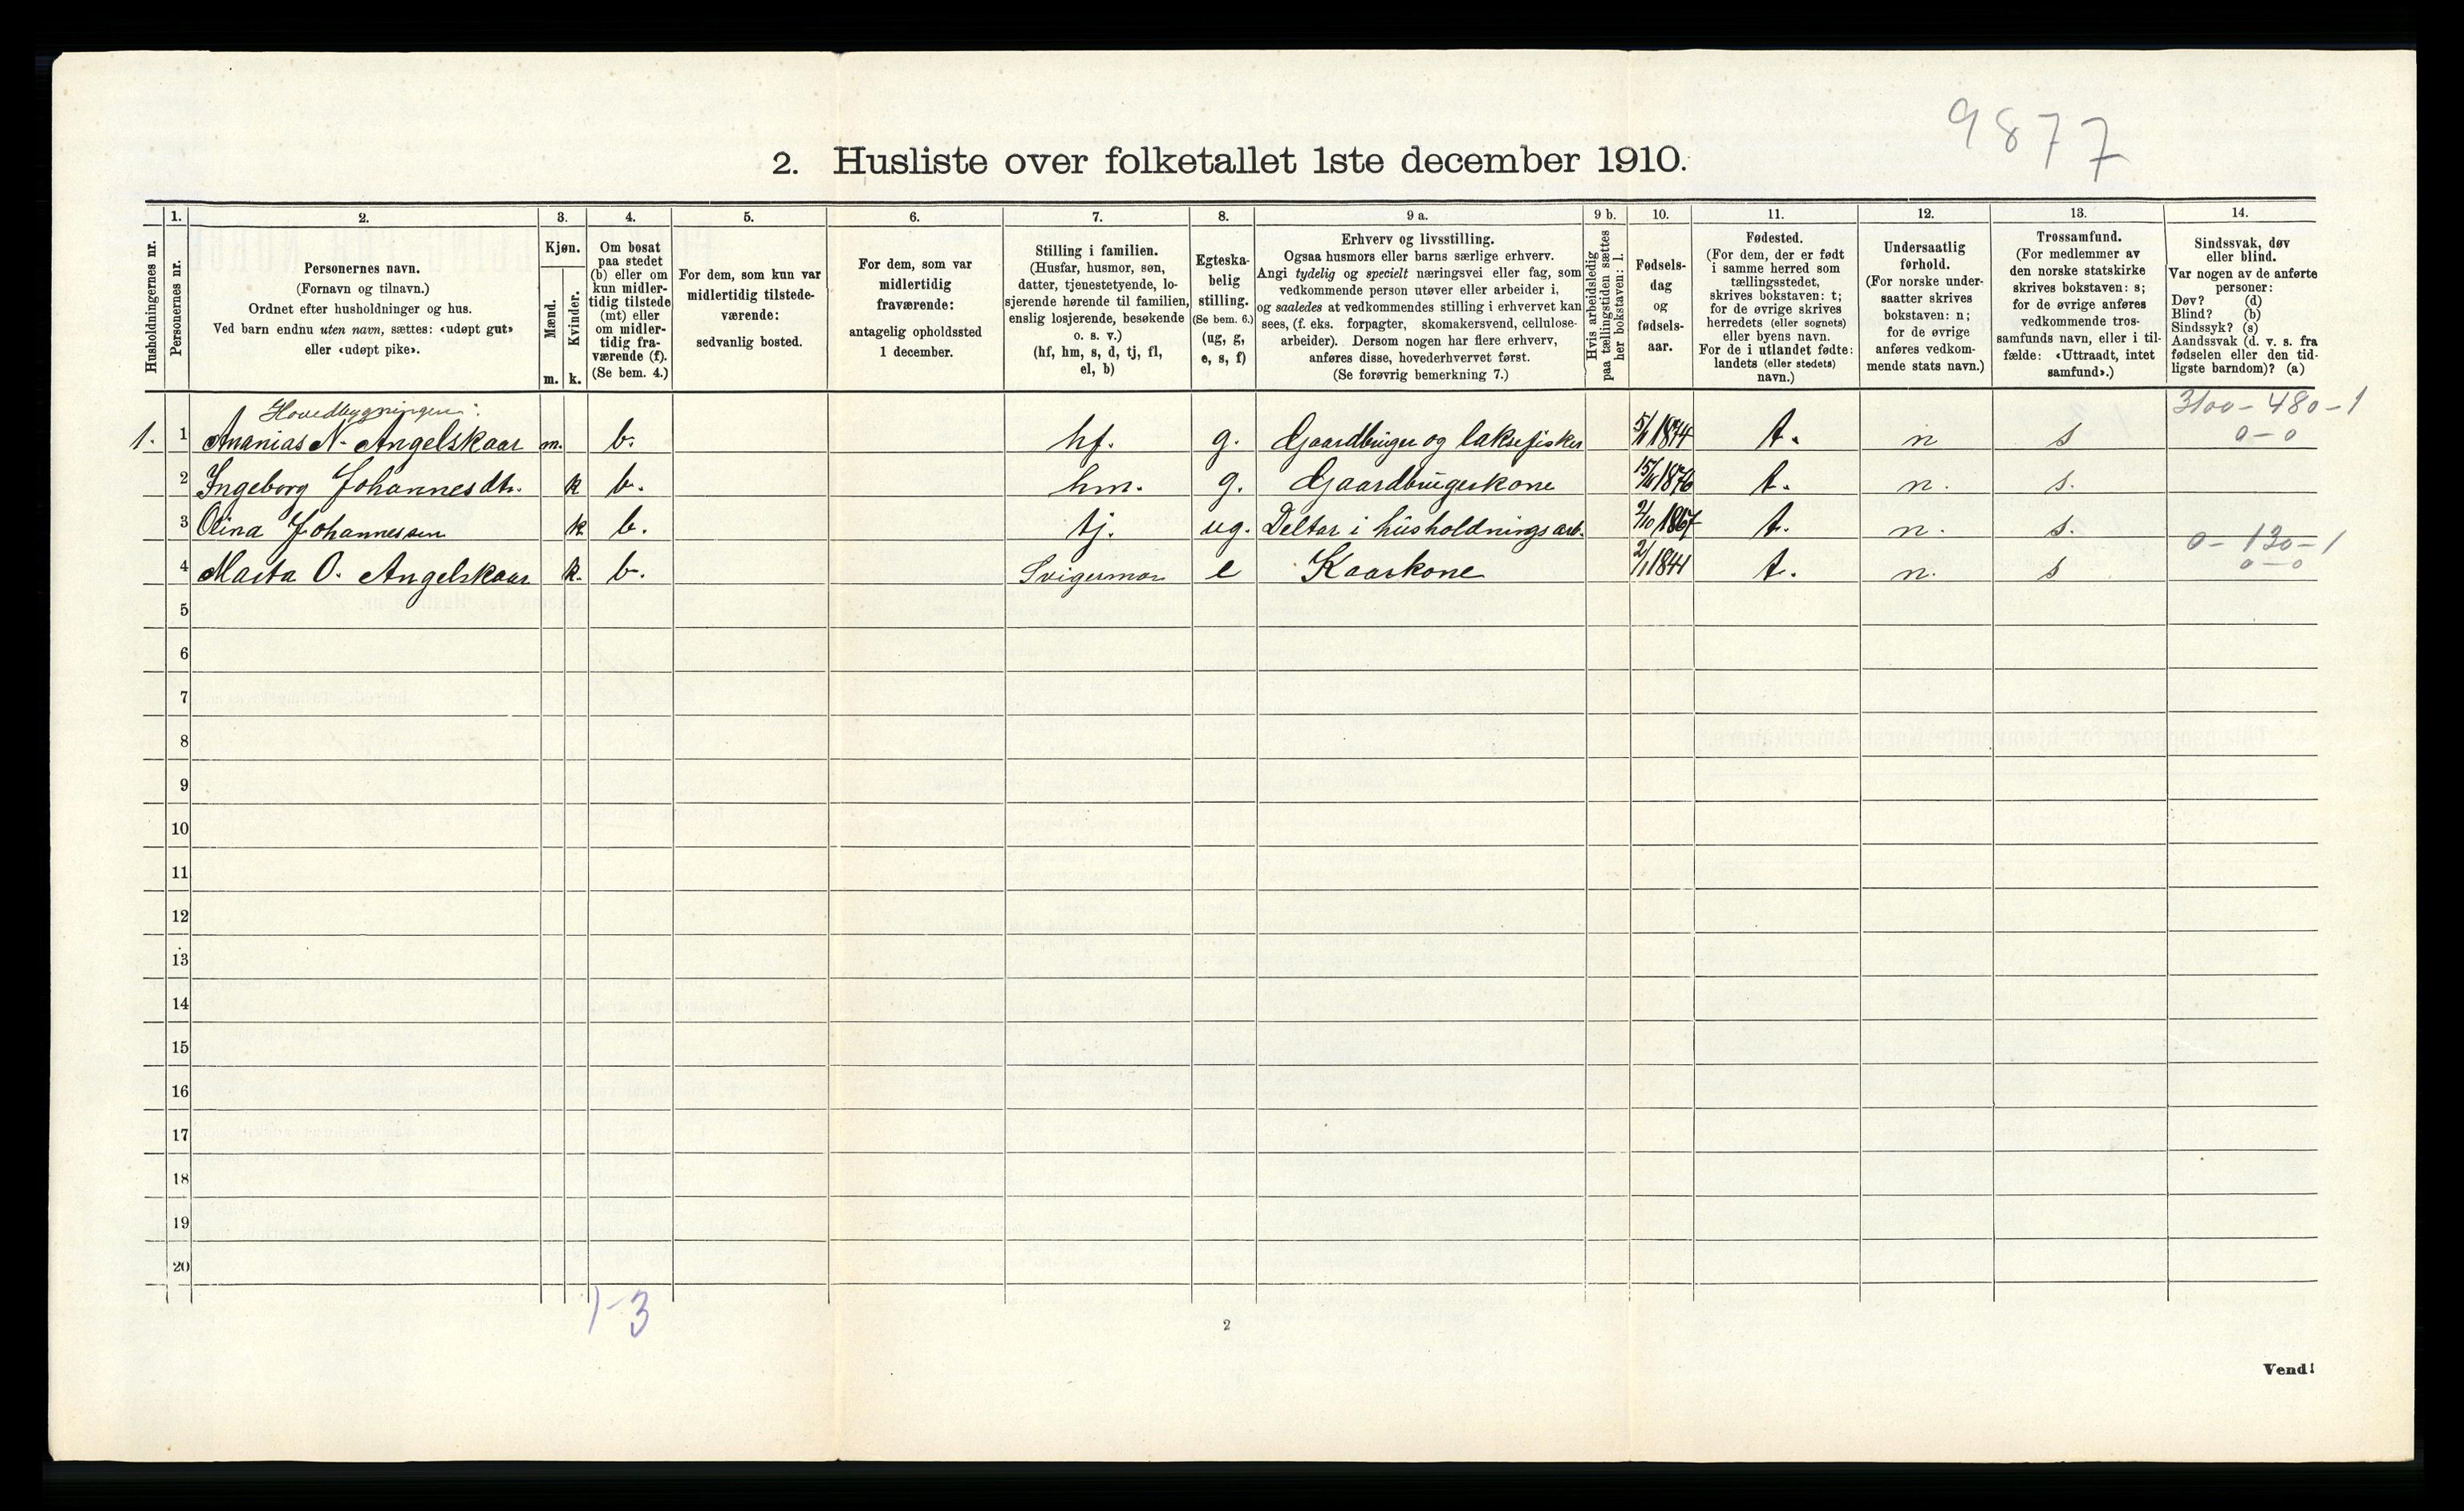 9877
2. Husliste over folketallet 1ste december 1910.
Husholdningernes nr.
1.
Personernes nr.
2.
Personernes navn.
(Fornavn og tilnavn.)
Ordnet efter husholdninger og hus.
Ved barn endnu uten navn, sættes: «udøpt gut»
eller «udøpt pike».
3.
Kjøn.
Mænd.
m.
Kvinder.
k.
4.
Om bosat
paa stedet
(b) eller om
kun midler-
tidig tilstede
(mt) eller
om midler-
tidig fra-
værende (f).
(Se bem. 4.)
5.
For dem, som kun var
midlertidig tilstede-
værende:
sedvanlig bosted.
6.
For dem, som var
midlertidig
fraværende:
antagelig opholdssted
1 december.
7.
Stilling i familien.
(Husfar, husmor, søn,
datter, tjenestetyende, lo-
sjerende hørende til familien,
enslig losjerende, besøkende
o. s. v.)
(hf, hm, s, d, tj, fl,
el, b)
8.
Egteska-
belig
stilling.
(Se bem. 6.)
(ug, g,
e, s, f)
9 a.
Erhverv og livsstilling.
Ogsaa husmors eller barns særlige erhverv.
Angi tydelig og specielt næringsvei eller fag, som
vedkommende person utøver eller arbeider i,
og saaledes at vedkommendes stilling i erhvervet kan
sees, (f. eks. forpagter, skomakersvend, cellulose-
arbeider). Dersom nogen har flere erhverv,
anføres disse, hovederhvervet først.
(Se forøvrig bemerkning 7.)
9 b.
Hvis arbeidsledig
paa tællingstiden sættes
her bokstaven: l.
10.
Fødsels-
dag
og
fødsels-
aar.
11.
Fødested.
(For dem, der er født
i samme herred som
tællingsstedet,
skrives bokstaven: t;
for de øvrige skrives
herredets (eller sognets)
eller byens navn.
For de i utlandet fødte:
landets (eller stedets)
navn.)
12.
Undersaatlig
forhold.
(For norske under-
saatter skrives
bokstaven: n;
for de øvrige
anføres vedkom-
mende stats navn.)
13.
Trossamfund.
(For medlemmer av
den norske statskirke
skrives bokstaven: s;
for de øvrige anføres
vedkommende tros-
samfunds navn, eller i til-
fælde: «Uttraadt, intet
samfund».)
14.
Sindssvak, døv
eller blind.
Var nogen av de anførte
personer:
Døv? (d)
Blind? (b)
Sindssyk? (s)
Aandssvak (d. v. s. fra
fødselen eller den tid-
ligste barndom)? (a)
Hovedbygningen:
3100 - 480 - 1
1. 1 Ananias N. Angelskaar m. b. hf. g. Gaardbruger og laksefisker 1874 t. n s 0 - 0
2 Ingeborg Johannesdtr. k b. hm. g. Gaardbrugerskone 1876 t. n. s.
3 Olina Johannessen k b. tj. ug. Deltar i husholdningsarb. 2/10 1867 t. n. s.
0 - 130 - 1
4 Marta O. Angelskaar k. b. Svigermor e Kaarkone 2/1 1841 t. n. s 0 - 0
5
6
7
8
9
10
11
12
13
14
15
16
17
18
19
20
1-3
2
Vend!